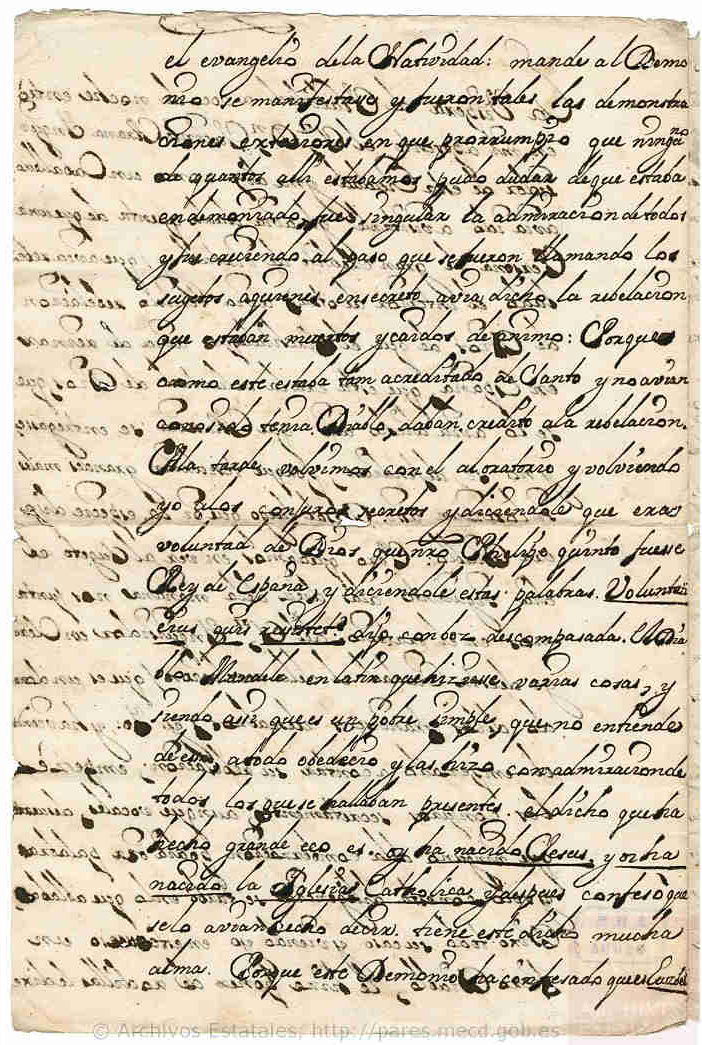 el evangelio dela Natividad: mande al Demo
nio se manifestase y fueron tales las demonstra
ciones exteriores en que prorrumpio que ningno
de quantos alli estabamos pudo dudar deque estaba
endemoniado, fue singular la admiracion de todos
y fue creciendo al paso que se fueron llamando los
sugetos aquienes ensecreto avia dicho la rebelacion
que estaban muertos y caidos de animo: Porque
como este estaba tam acreditado de Santo y no avian
conosido tenia Diablo, daban credito ala rebelacion.
Ala tarde volvimos con el al oratorio y volviendo
yo alos conjuros secretos y diciendole que era
voluntad de Dios que nro Phelipe quinto fuese
Rey de España, y diciendole estas palabras. Voluntati
Eius quis resistet? dijo con boz descompasada. El Dia
blo. Mandele en latin que hiziesse varias cosas, y
siendo assi que es un pobre simple que no entiende
de esso atodo obedecio y las hizo con admiracion de
todos los que se hallaban presentes. el dicho que ha
hecho grande eco es. oy ha nacido Jesus, y oi ha
nacido la Iglesia Catholica, y despues confesò que
selo avian hecho decir. tiene este dicho mucha
alma. Porque este Demonio ha confesado que es Luzbel
© Archivos Estatales, http://pares.mecd.gob.es